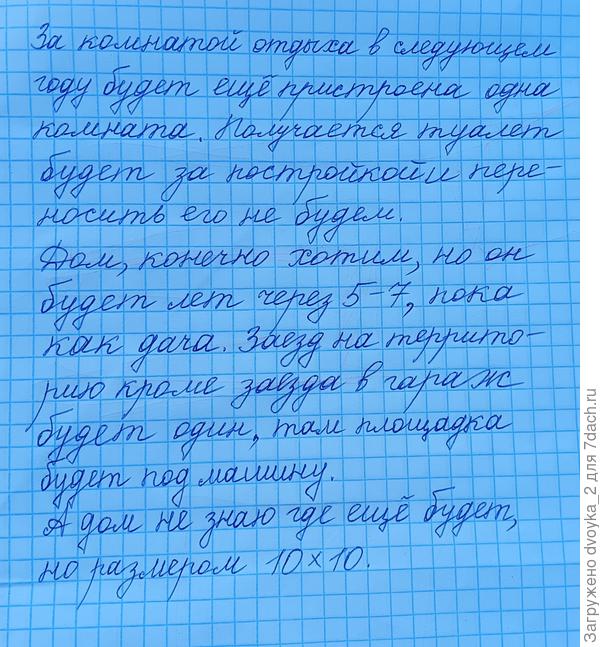 За комнатой отдыха в следующем
году будет ещё пристроена одна
комната. Получается туалет
будет за постройкой и пере-
носить его не будем.
Дом, конечно хотим, но он
будет лет через 5-7, пока
как дача. Заезд на террито-
рию кроме заезда в гараж
будет один, там площадка
будет под машину.
А дом не знаю где ещё будет,
но размером 10×10.
Загружено dvoyka_2 для 7dach.ru